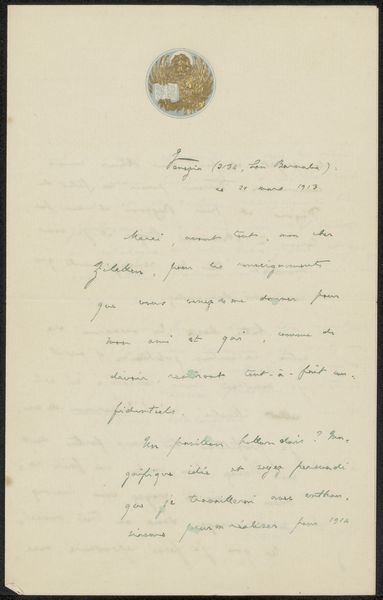 Venezia (3134, San Barnaba).
ce 21 mars 1913
Merci, avant tout, mon cher
Zilcken, pour les renseignements
que vous venez de me donner pour
mon ami et qui, comme de
devoir, resteront tout-à-fait con-
fidentiels.
Un pavillon hollandais? Ma-
gnifique idée et soyez persuadé
que je travaillerai avec enthou-
siasme pour en réaliser pour 1914